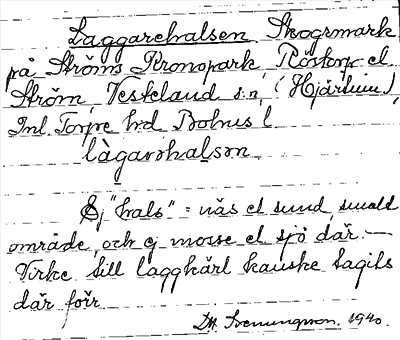 Laggarehalsen Skogsmark
på Ströms Kronopark, Röstorp el
Ström, Vesterland s:n, (Hjärtum),
Inl. Torpe hrd Bohus l
làgarəhalsən
Ej "hals" = näs el sund, smalt
område, och ej mosse el sjö där. —
Virke till laggkärl kanske tagits
där förr
1940.